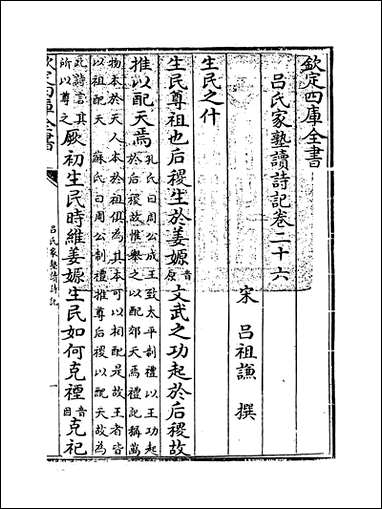 欽定四庫全書
呂氏家塾讀詩記卷二十六
宋 呂祖謙 撰
生民之什
生民尊祖也后稷生於姜嫄音原文武之功起於后稷故
推以配天焉孔氏曰周公成王致太平制禮以王功起
於后稷故推舉之以配郊天焉禮記稱萬
物本於天人本於祖俱為其本可以相配是故王者皆
以祖配天 蘇氏曰周公制禮推尊后稷以配天故為
此詩言其
所以尊之厥初生民時維姜嫄生民如何克禋音因克祀
欽定四庫全書
呂氏家塾讀詩記
一